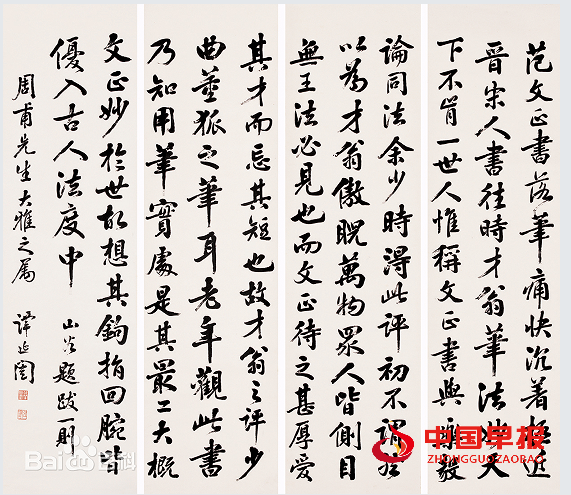 范文正書落筆痛快沉著極近
晉宋人書往時才翁筆法妙天
下不肯一世人惟稱文正書與樂毅
論同法余少時得此評初不謂然
以為才翁傲睨萬物眾人皆側目
無王法必見也而文正待之甚厚愛
其才而忘其短也故才翁之評少
曲董狐之筆耳老年觀此書
乃知用筆實處是其最工大概
文正妙於世故想其鉤指回腕皆
優入古人法度中 山谷題跋一則
周甫先生大雅之屬 譚延闓
中国早报
ZHONGGUOZAOBAO
Bai百科